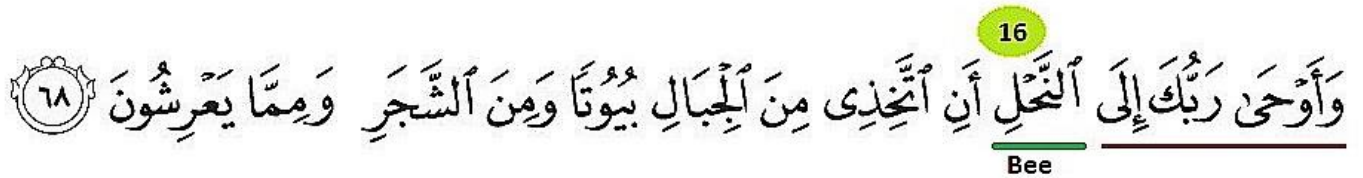 16
وَأَوْحَىٰ رَبُّكَ إِلَى ٱلنَّحْلِ أَنِ ٱتَّخِذِى مِنَ ٱلْجِبَالِ بُيُوتًا وَمِنَ ٱلشَّجَرِ وَمِمَّا يَعْرِشُونَ ٦٨
Bee